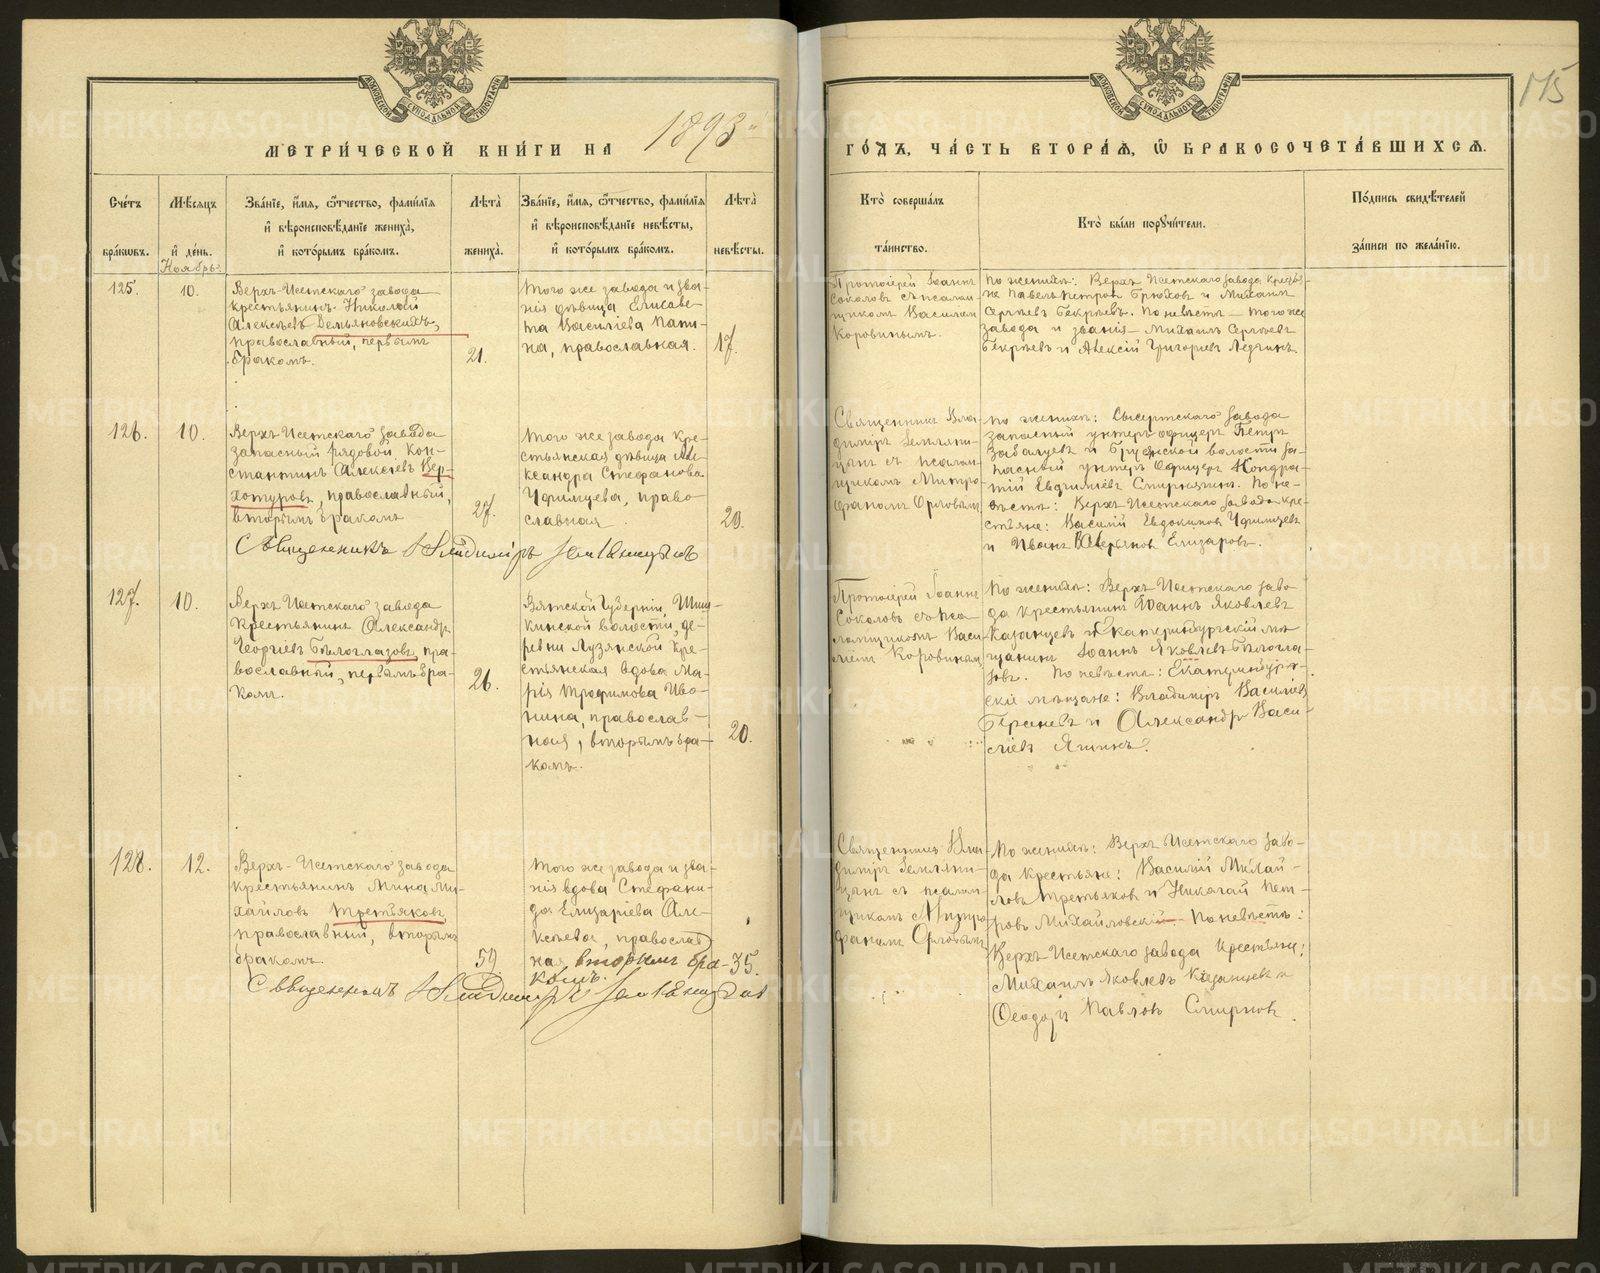 МЕТРИ́ЧЕСКОЙ КНИ́ГИ НА 1893 ГО́ДЪ, ЧА́СТЬ ВТОРА́Ѧ, Ѿ БРАКОСОЧЕТА́ВШИХСѦ.
175
Сче́тъ бра́кѡвъ.
Мѣсяцъ и҆ де́нь.
Зва́нїе, и҆́мя, ѻ҆́тчество, фами́лїя
и҆ вѣроисповѣданїе жениха̀,
и҆ кото́рымъ бра́комъ.
Лѣ́та жениха̀.
Зва́нїе, и҆́мя, ѻ҆́тчество, фами́лїя
и҆ вѣроисповѣданїе невѣ́сты,
и҆ кото́рымъ бра́комъ.
Лѣ́та невѣ́сты.
Кто̀ соверша́лъ
та́инство.
Кто̀ бы́ли поручи́тели.
По́дпись свидѣ́телей
за́писи по жела́нїю.
Ноябрь.
125.
10.
Верхъ-Исетскаго завода
крестьянинъ Николай
Алексѣевъ Демьяновскихъ,
православный, первымъ
бракомъ.
21.
Того же завода и зва-
нія дѣвица Елисаве-
та Василіева Папи-
на, православная.
17.
Протоіерей Іоаннъ
Соколовъ съ псалом-
щикомъ Василіем
Коровинымъ.
По женихѣ: Верхъ Исетскаго завода крестья-
не Павелъ Петровъ Брюховъ и Михаилъ
Сергѣевъ Бекрѣевъ. По невѣстѣ – того же
завода и званія – Михаилъ Сергѣевъ
Бекрѣевъ и Алексій Григорьевъ
126.
10.
Верхъ Исетскаго завода
запасный рядовой Кон-
стантинъ Алексѣевъ Вер-
хотуровъ, православный,
вторымъ бракомъ
27.
Того же завода кре-
стьянская дѣвица Але-
ксандра Стефанова
Уфимцева, право-
славная
20.
Священникъ Вла-
димиръ Земляни-
цынъ съ псалом-
щикомъ Митро-
фаномъ Орловым
По женихѣ: Сысертскаго завода
запасный унтеръ офицеръ Петръ
и волости за-
пасный унтеръ офицеръ Кондра-
тій Евдиміевъ По не-
вѣстѣ: Верхъ Исетскаго завода кре-
стьяне: Василій Евдокимовъ Уфимцевъ
и Иванъ Елизаровъ.
Священникъ Владимиръ Земляницынъ
127.
10.
Верхъ Исетскаго завода
крестьянинъ Александръ
Георгіевъ Бѣлоглазовъ, пра-
вославный, первымъ бра-
комъ.
26.
Вятской Губерніи,
волости, де-
ревни Лузянской кре-
стьянская вдова Ма-
рія Трофимова Ива-
нина, православ-
ная, вторымъ бра-
комъ.
20.
Протоіерей Іоаннъ
Соколовъ съ пса-
ломщикомъ Васи-
ліемъ Коровиным
По женихѣ: Верхъ Исетскаго заво-
да крестьянинъ Іоаннъ Яковлевъ
Казанцевъ и Екатеринбургскій мѣ-
щанинъ Іоаннъ Яковлевъ Бѣлогла-
зовъ. По невѣстѣ: Екатеринбург-
скіе мѣщане: Владимиръ Василіев
и Александръ Васи-
ліевъ Яшинъ.
128.
12.
Верхъ-Исетскаго завода
крестьянинъ Мина Ми-
хайловъ Третьяковъ,
православный, вторымъ
бракомъ.
59
Того же завода и зва-
нія вдова Стефани-
да Елизаріева Але-
ксѣева, православ-
ная вторымъ бра-
комъ.
35.
Священникъ Вла-
димиръ Земляни-
цынъ съ псалом-
щикомъ Митро-
фаномъ Орловымъ
По женихѣ: Верхъ Исетскаго заво-
да крестьяне: Василій Михай-
ловъ Третьяковъ и Николай Пет-
ровъ Михайловскій. По невѣстѣ:
Верхъ Исетскаго завода крестьяне:
Михаилъ Яковлевъ Казанцевъ и
Ѳеодоръ Павловъ Смирновъ.
Священникъ Владимиръ Земляницынъ
METRIKI.GASO-URAL.RU